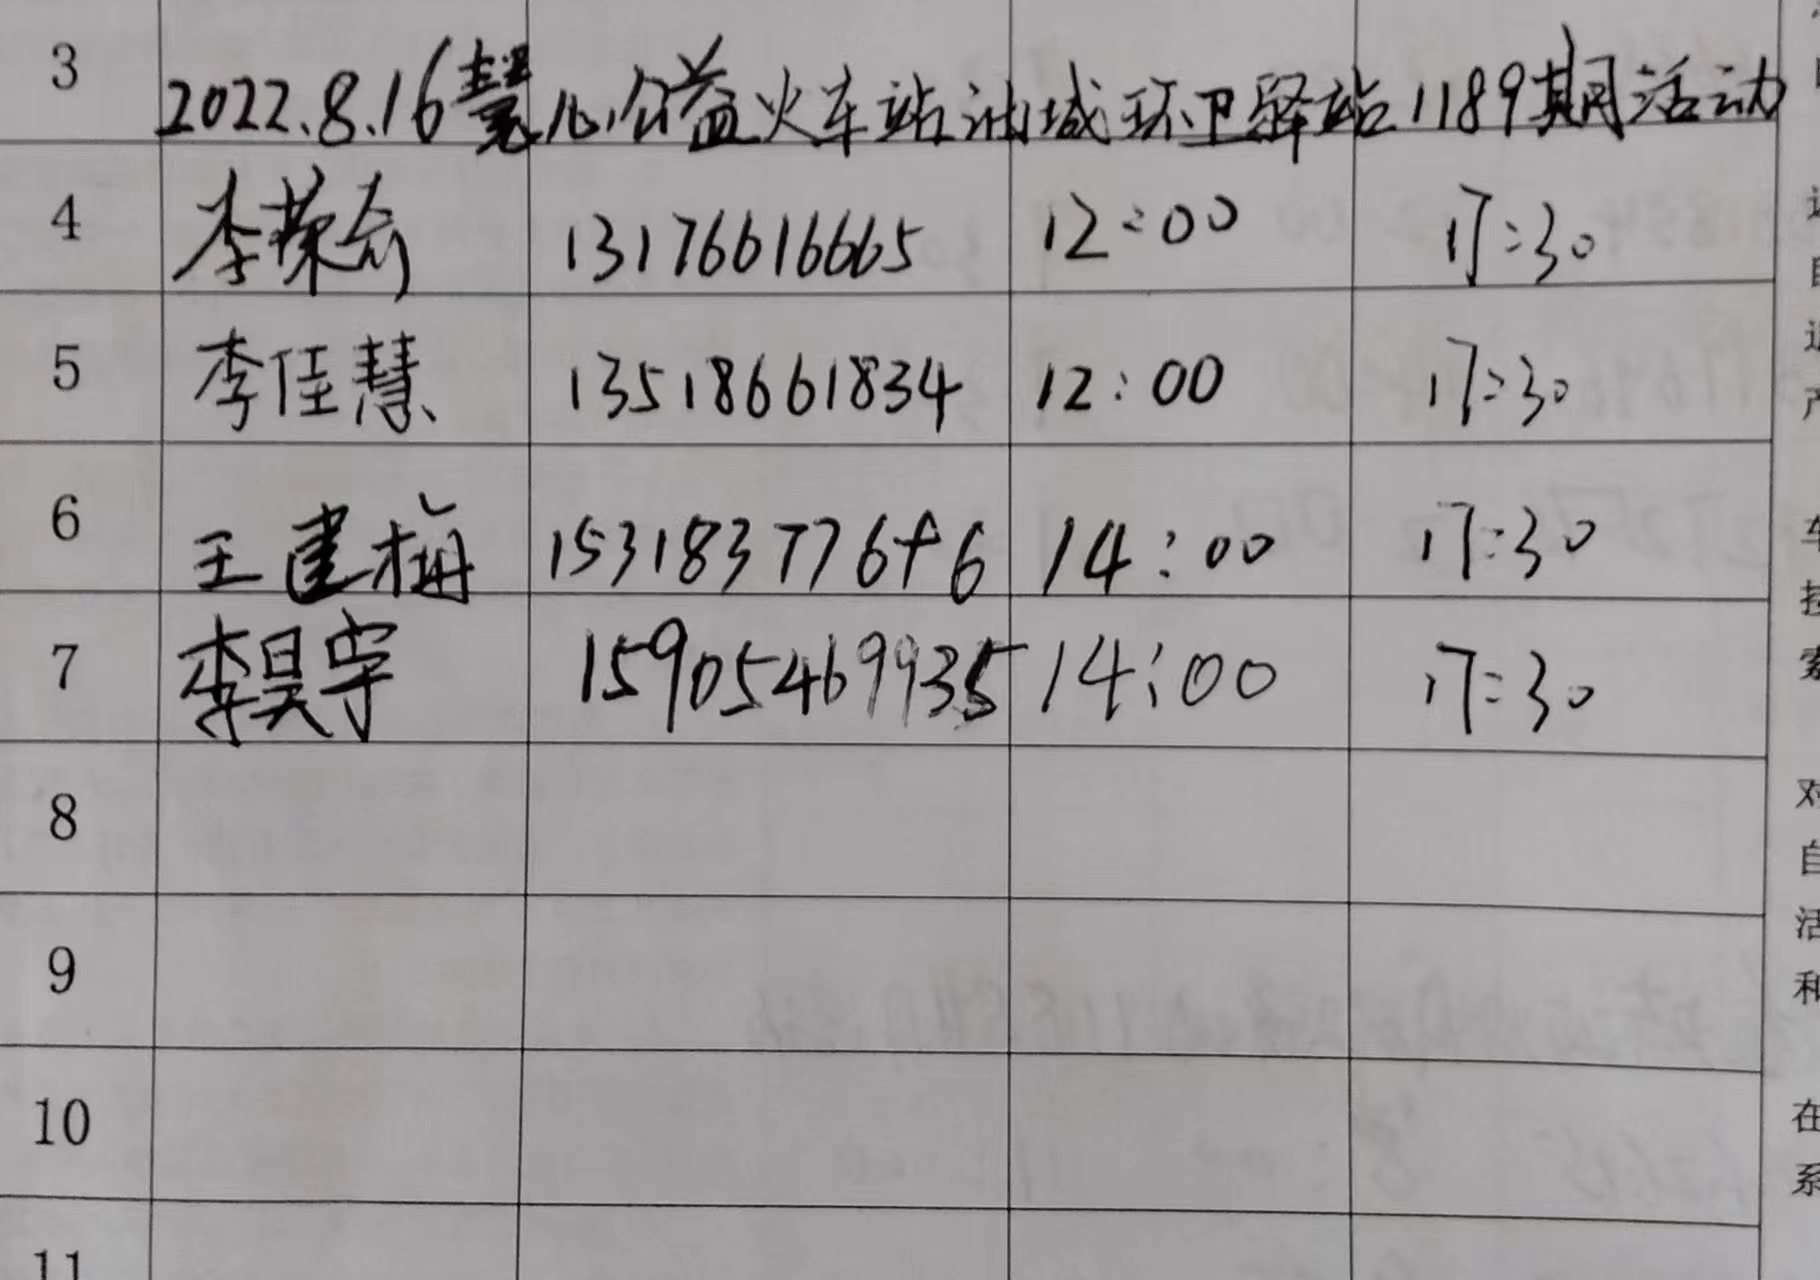 3 2022.8.16慧心公益火车站油城环卫驿站1189期活动
4 李荣奇 13176616665 12:00 17:30
5 李佳慧 13518661834 12:00 17:30
6 王建梅 15318377676 14:00 17:30
7 李昊宇 15905469935 14:00 17:30
8
9
10
11
车
技
索
对
自
活
和
在
系